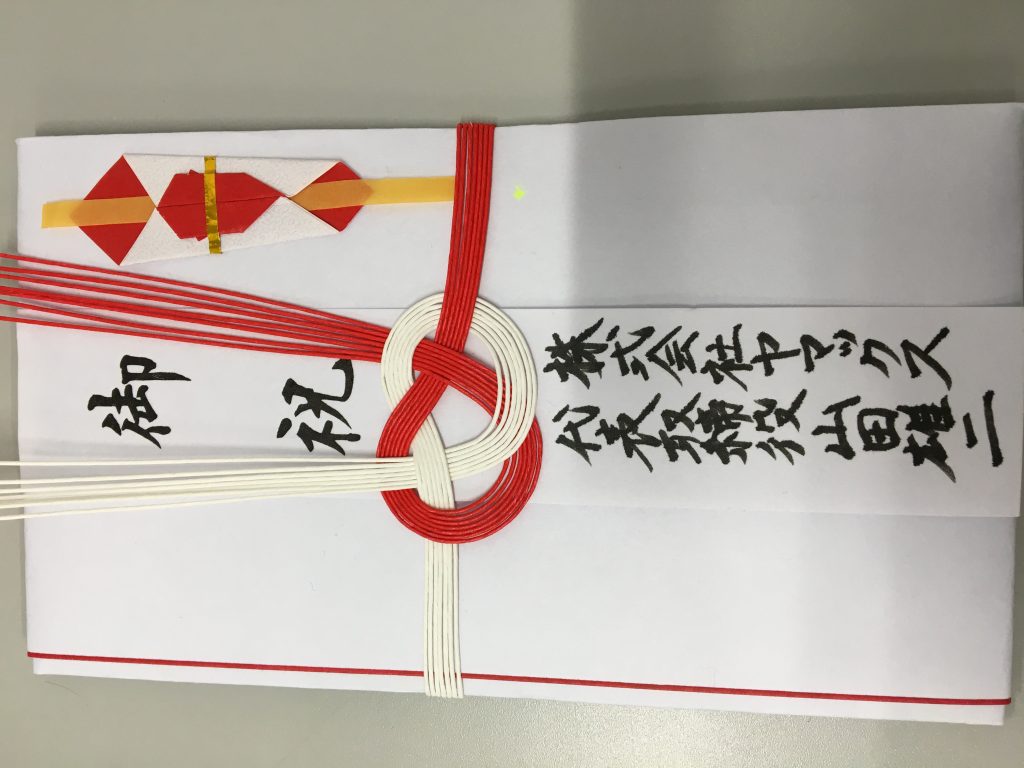 御祝
株式会社ヤマックス
代表取締役 山田雄二